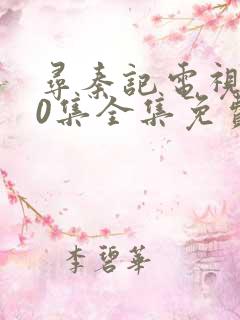 尋秦記電視
0集全集免費
李碧華